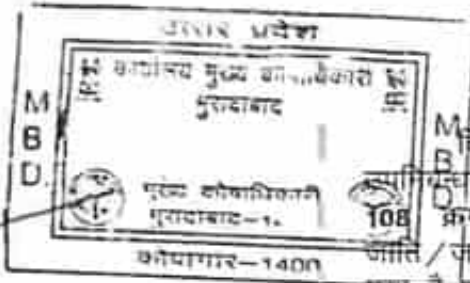 उत्तर प्रदेश
कार्यालय मुख्य कोषाधिकारी
मुरादाबाद
M
B
D.
M
B
D
मुख्य कोषाधिकारी
मुरादाबाद-१.
108
कोषागार-1400
जाति /